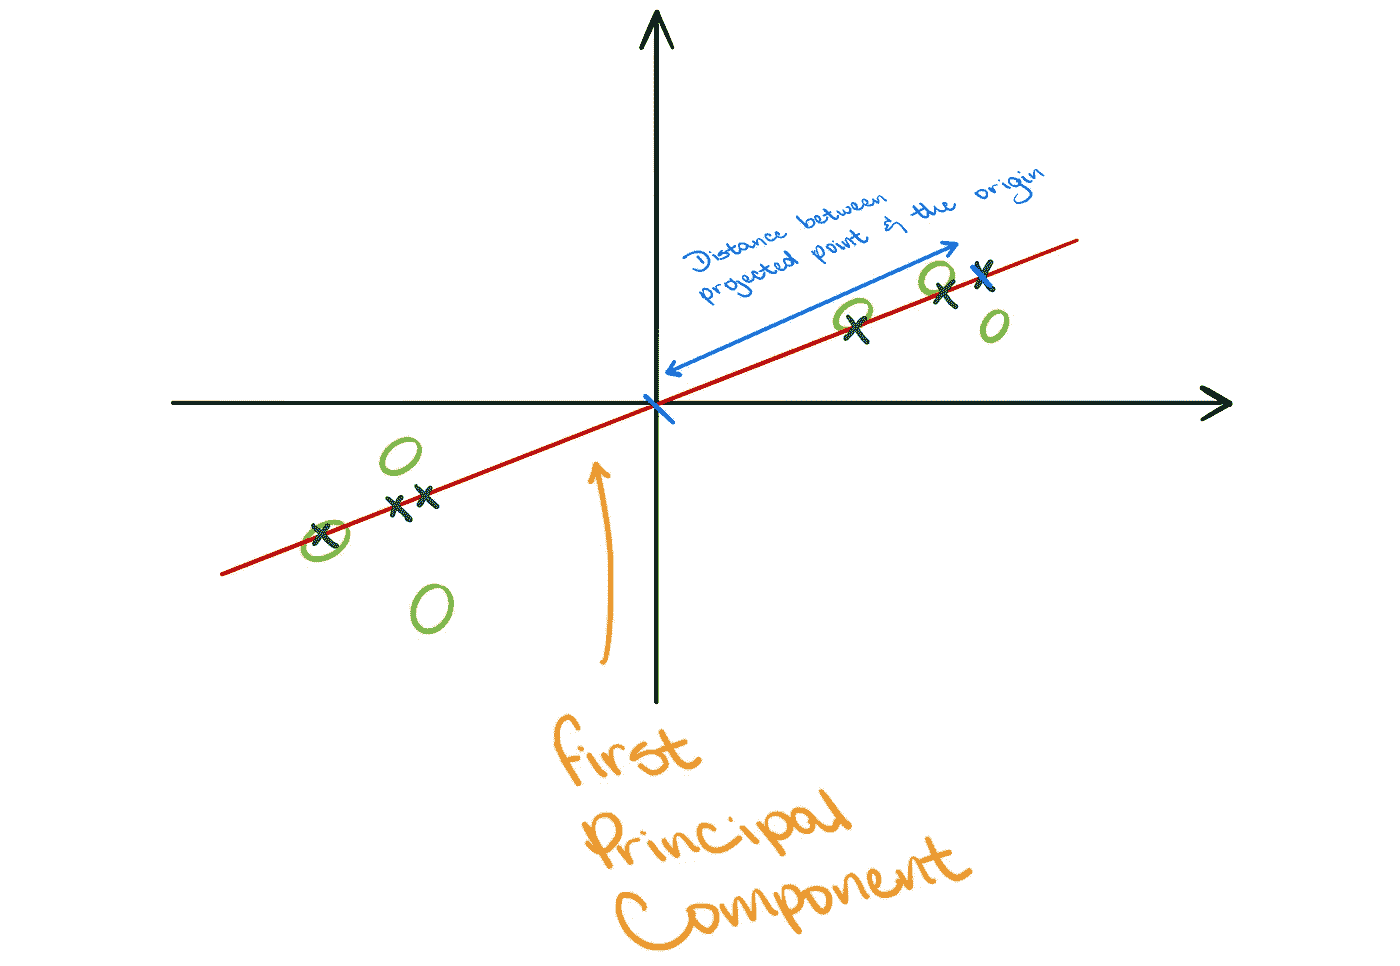 Distance between
projected point & the origin
first
Principal
Component